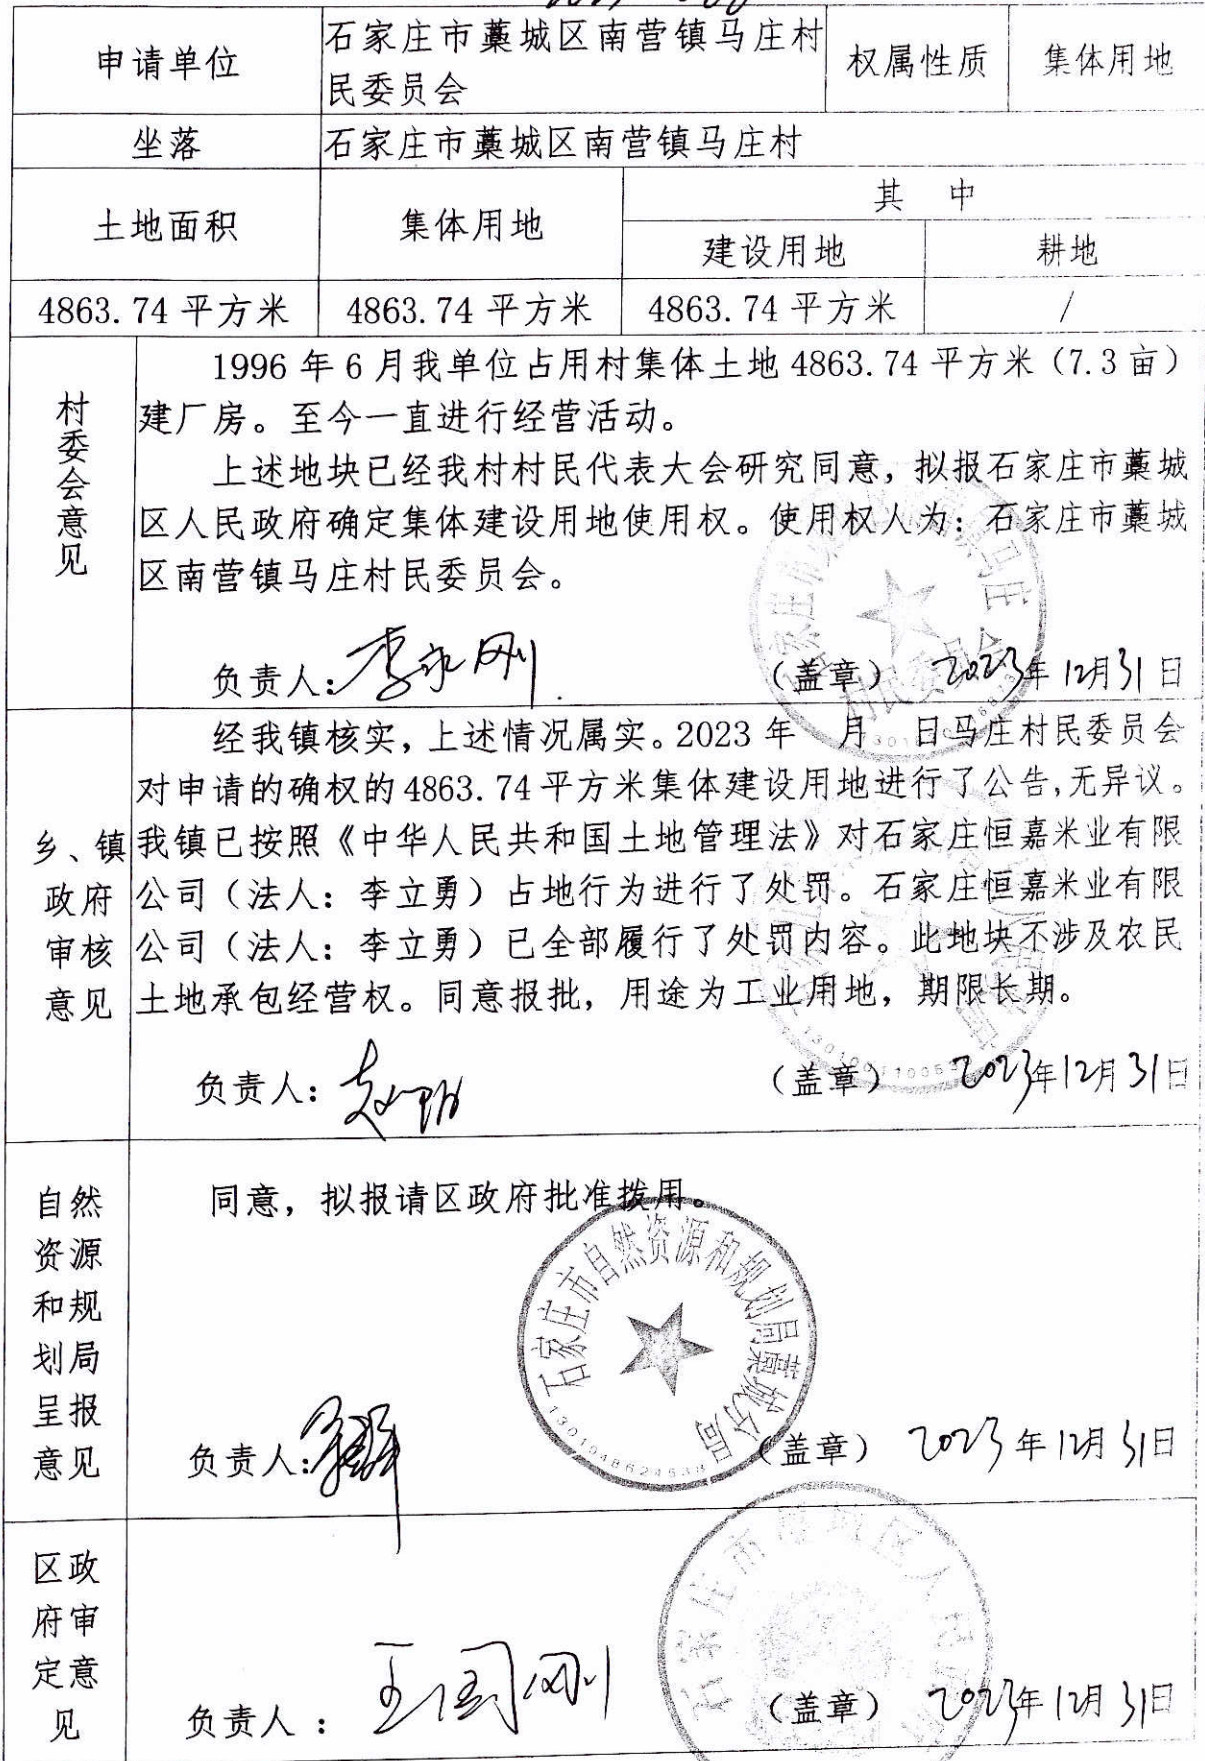 申请单位
石家庄市藁城区南营镇马庄村
民委员会
权属性质
集体用地
坐落
石家庄市藁城区南营镇马庄村
土地面积
集体用地
其 中
建设用地
耕地
4863.74平方米
4863.74平方米
4863.74平方米
/
村委会意见
1996年6月我单位占用村集体土地4863.74平方米（7.3亩）
建厂房。至今一直进行经营活动。
上述地块已经我村村民代表大会研究同意，拟报石家庄市藁城
区人民政府确定集体建设用地使用权。使用权人为：石家庄市藁城
区南营镇马庄村民委员会。
负责人：李永刚
（盖章） 2023年12月31日
乡、镇
政府
审核
意见
经我镇核实，上述情况属实。2023年 月 日马庄村民委员会
对申请的确权的4863.74平方米集体建设用地进行了公告，无异议。
我镇已按照《中华人民共和国土地管理法》对石家庄恒嘉米业有限
公司（法人：李立勇）占地行为进行了处罚。石家庄恒嘉米业有限
公司（法人：李立勇）已全部履行了处罚内容。此地块不涉及农民
土地承包经营权。同意报批，用途为工业用地，期限长期。
负责人：
（盖章） 2023年12月31日
自然
资源
和规
划局
呈报
意见
同意，拟报请区政府批准拨用。
石家庄市自然资源和规划局藁城分局
负责人：
（盖章） 2023年12月31日
区政
府审
定意
见
石家庄市藁城区人民
负责人：王国刚
（盖章） 2023年12月31日